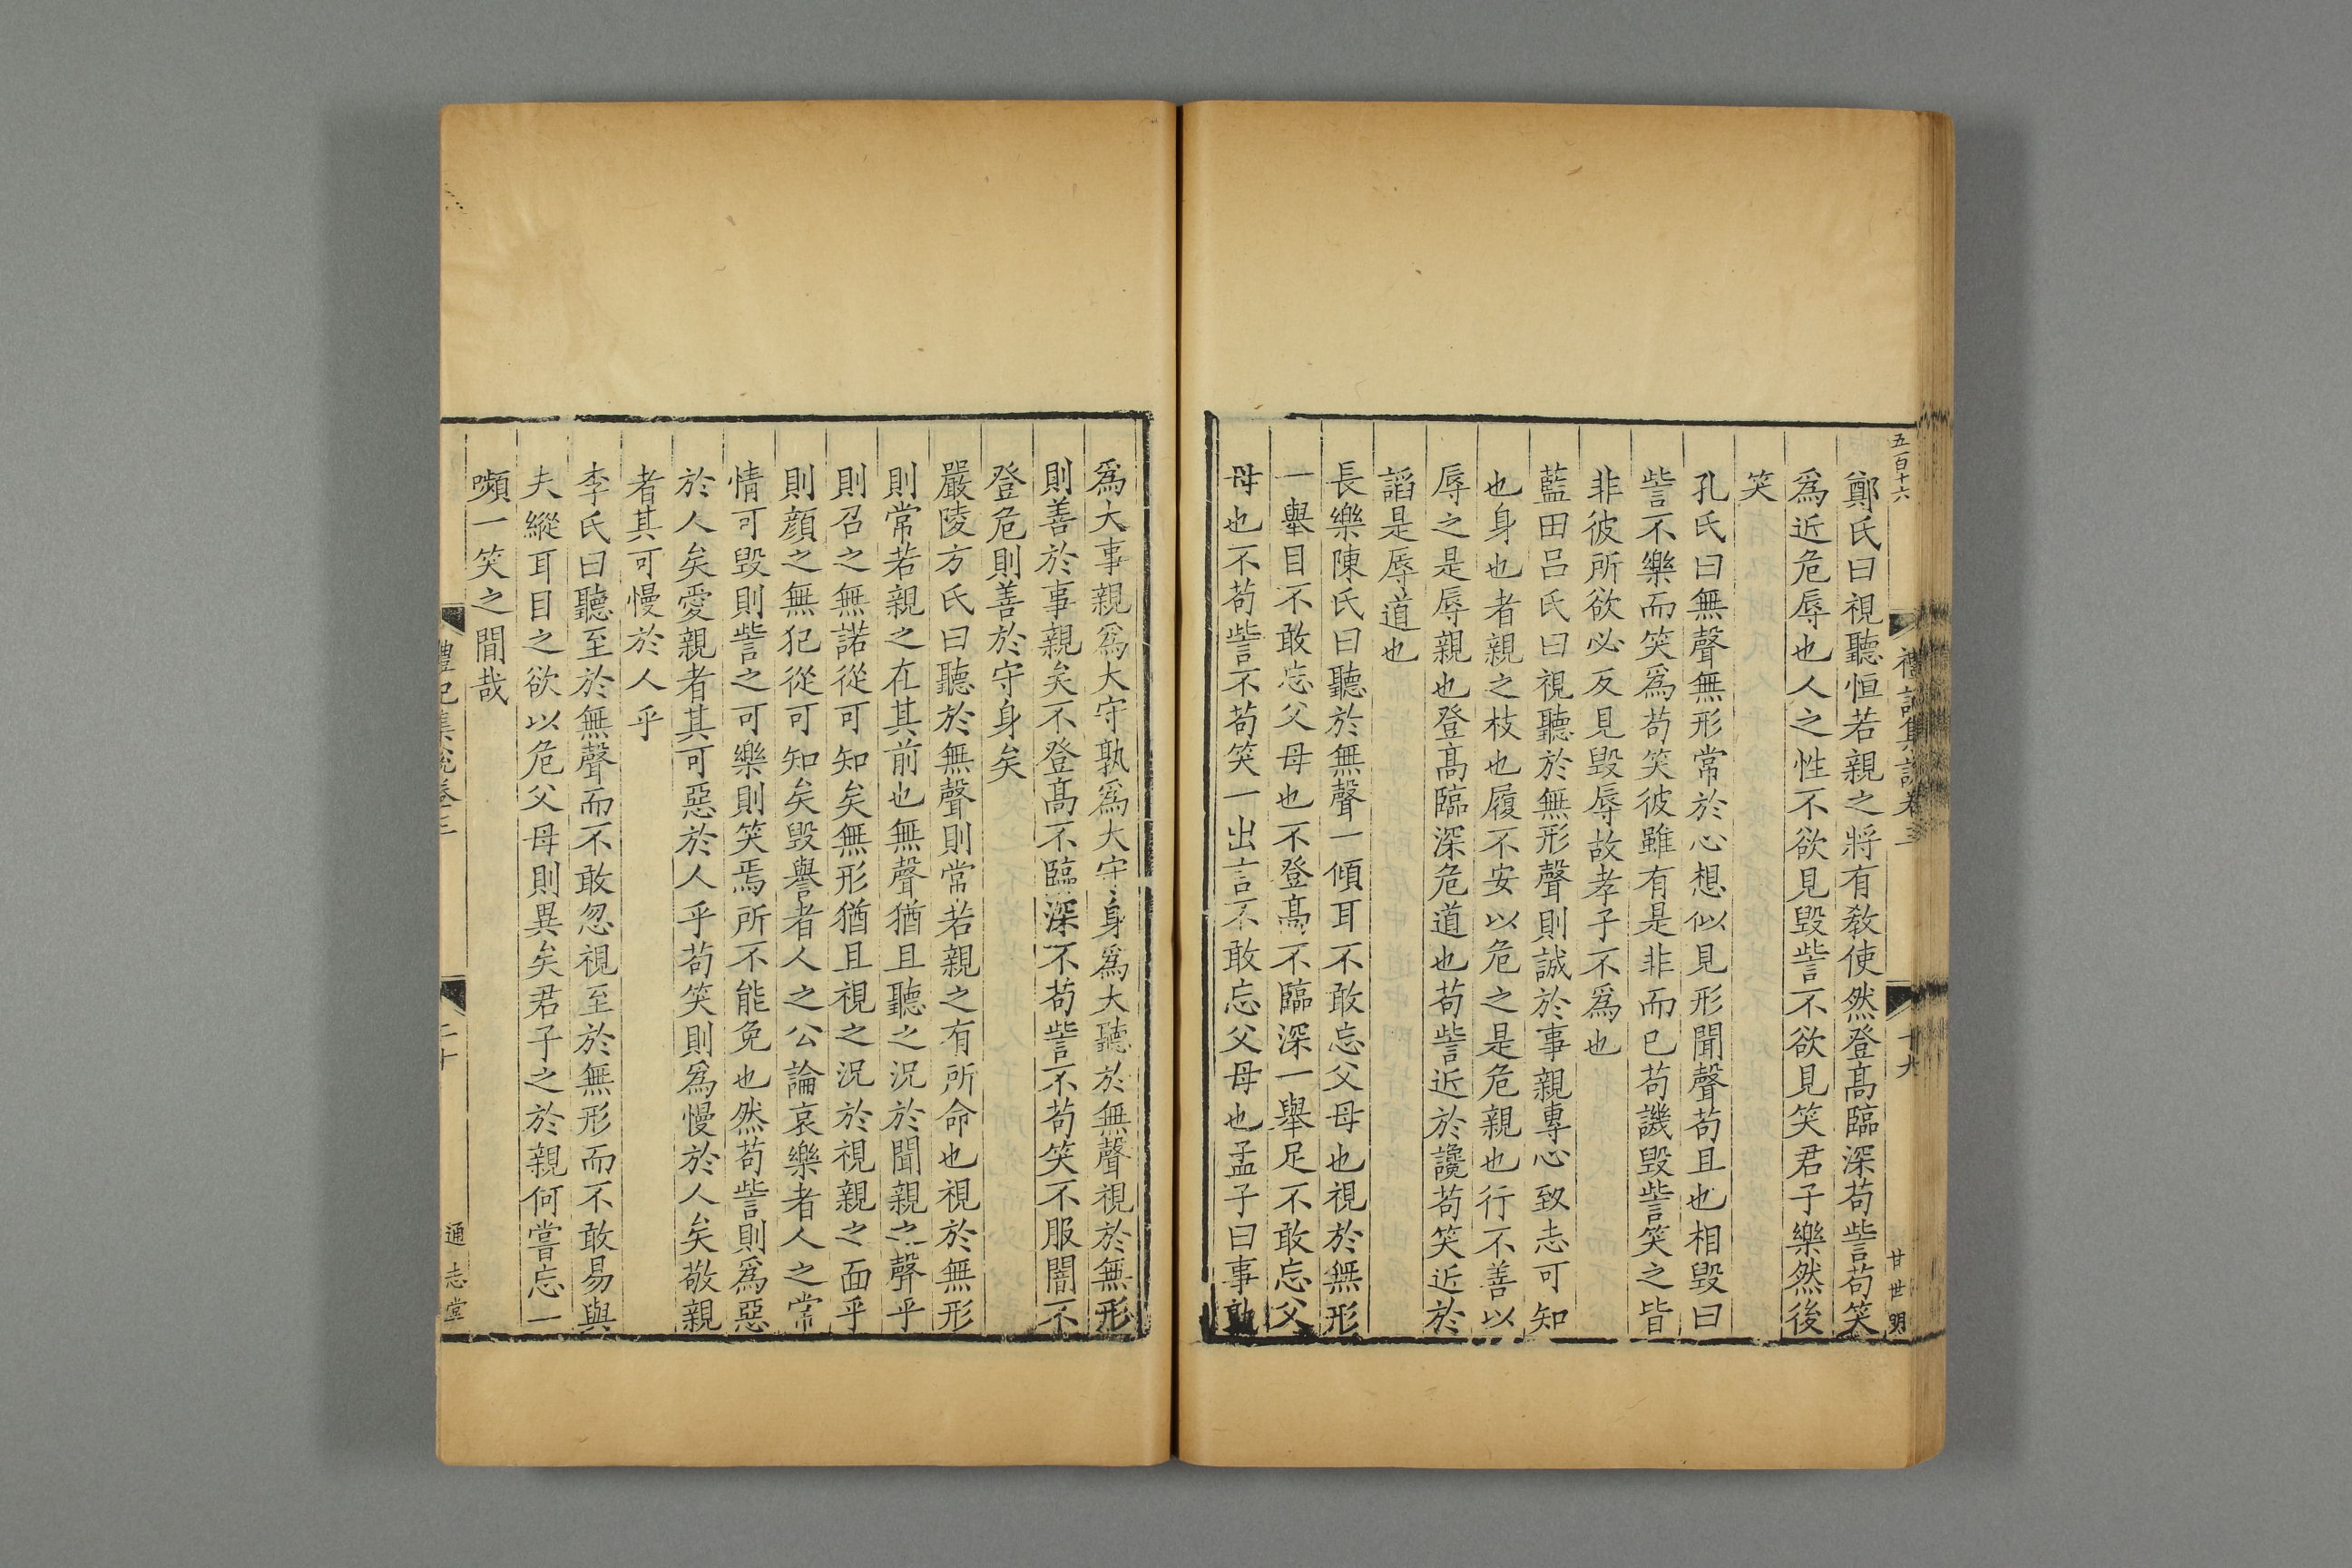 五百十六
禮記集說卷三
十九
甘世明
鄭氏曰視聽恒若親之將有教使然登髙臨深苟訾苟笑
爲近危辱也人之性不欲見毀訾不欲見笑君子樂然後
笑
孔氏曰無聲無形常於心想似見形聞聲苟且也相毀曰
訾不樂而笑爲苟笑彼雖有是非而已苟譏毀訾笑之皆
非彼所欲必反見毀辱故孝子不爲也
藍田呂氏曰視聽於無形聲則誠於事親專心致志可知
也身也者親之枝也履不安以危之是危親也行不善以
辱之是辱親也登髙臨深危道也苟訾近於讒苟笑近於
諂是辱道也
長樂陳氏曰聽於無聲一傾耳不敢忘父母也視於無形
一舉目不敢忘父母也不登髙不臨深一舉足不敢忘父
母也不苟訾不苟笑一出言不敢忘父母也孟子曰事孰
爲大事親爲大守孰爲大守身爲大聽於無聲視於無形
則善於事親矣不登髙不臨深不苟訾不苟笑不服闇不
登危則善於守身矣
嚴陵方氏曰聽於無聲則常若親之有所命也視於無形
則常若親之在其前也無聲猶且聽之況於聞親之聲乎
則召之無諾從可知矣無形猶且視之況於視親之面乎
則顔之無犯從可知矣毀譽者人之公論哀樂者人之常
情可毀則訾之可樂則笑焉所不能免也然苟訾則爲惡
於人矣愛親者其可惡於人乎苟笑則爲慢於人矣敬親
者其可慢於人乎
李氏曰聽至於無聲而不敢忽視至於無形而不敢易與
夫縱耳目之欲以危父母則異矣君子之於親何嘗忘一
嚬一笑之間哉
禮記集說卷三
二十
通志堂